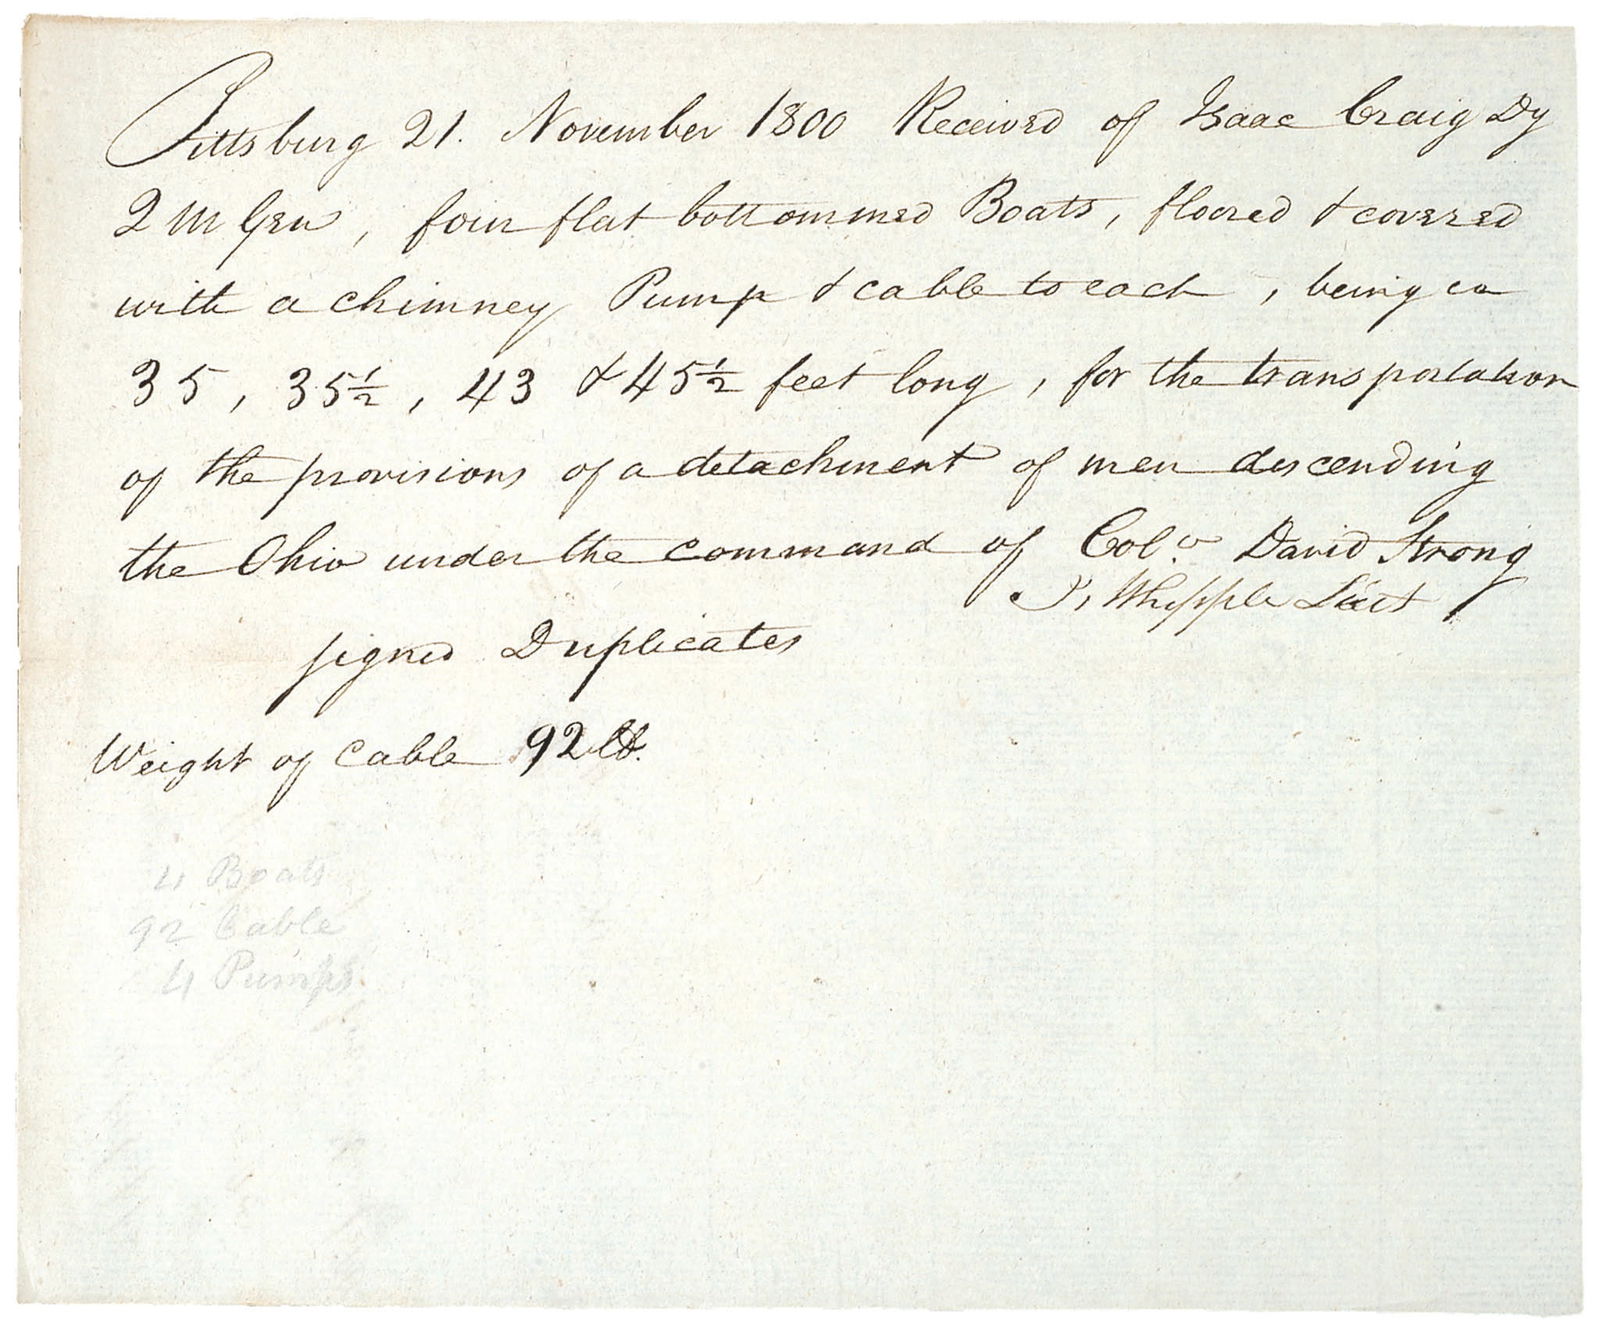 Pittsburg 21. November 1800 Received of Isaac Craig Dy
Q M Gen, four flat bottommed Boats, floored & covered
with a chimney Pump & cable to each, being
35, 35½, 43 & 45½ feet long, for the transportation
of the provisions of a detachment of men descending
the Ohio under the command of Colo. David Strong
Whipple Lieut
signed Duplicates
Weight of Cable 92 lb.
4 Boats
92 Cable
4 Pumps